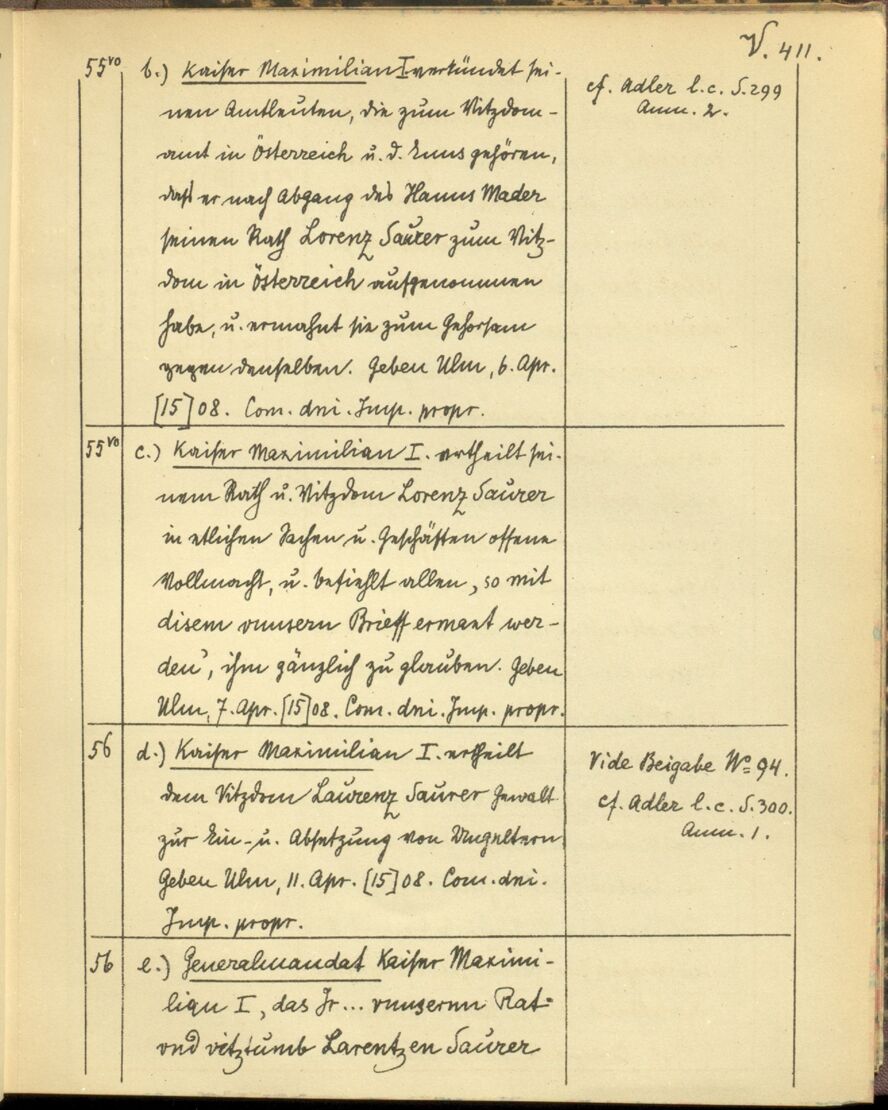 V. 411.
55vo b.) Kaiser Maximilian I verkündet sei-
nen Amtleuten, die zum Vitzdom-
amt in Österreich u. d. Enns gehören,
daß er nach Abgang des Hanns Mader
seinen Rath Lorenz Saurer zum Vitz-
dom in Österreich aufgenommen
habe, u. ermahnt sie zum Gehorsam
gegen denselben. Geben Ulm, 6. Apr.
[15]08. Com. dni. Imp. propr.
cf. Adler l.c. S. 299
Anm. 2.
55vo c.) Kaiser Maximilian I. ertheilt sei-
nem Rath u. Vitzdom Lorenz Saurer
in etlichen Sachen u. Geschäften offene
Vollmacht, u. befiehlt allen, so mit
disem vnnsern Brieff ermant wer-
den', ihm gänzlich zu glauben. Geben
Ulm, 7. Apr. [15]08. Com. dni. Imp. propr.
56 d.) Kaiser Maximilian I. ertheilt
dem Vitzdom Laurenz Saurer Gewalt
zur Ein- u. Absetzung von Ungeltern.
Geben Ulm, 11. Apr. [15]08. Com. dni.
Imp. propr.
Vide Beigabe No 94.
cf. Adler l.c. S. 300.
Anm. 1.
56 e.) Generalmandat Kaiser Maximi-
lian I, das Jr... vnnserm Rat-
vnd vitztumb Larentzen Saurer